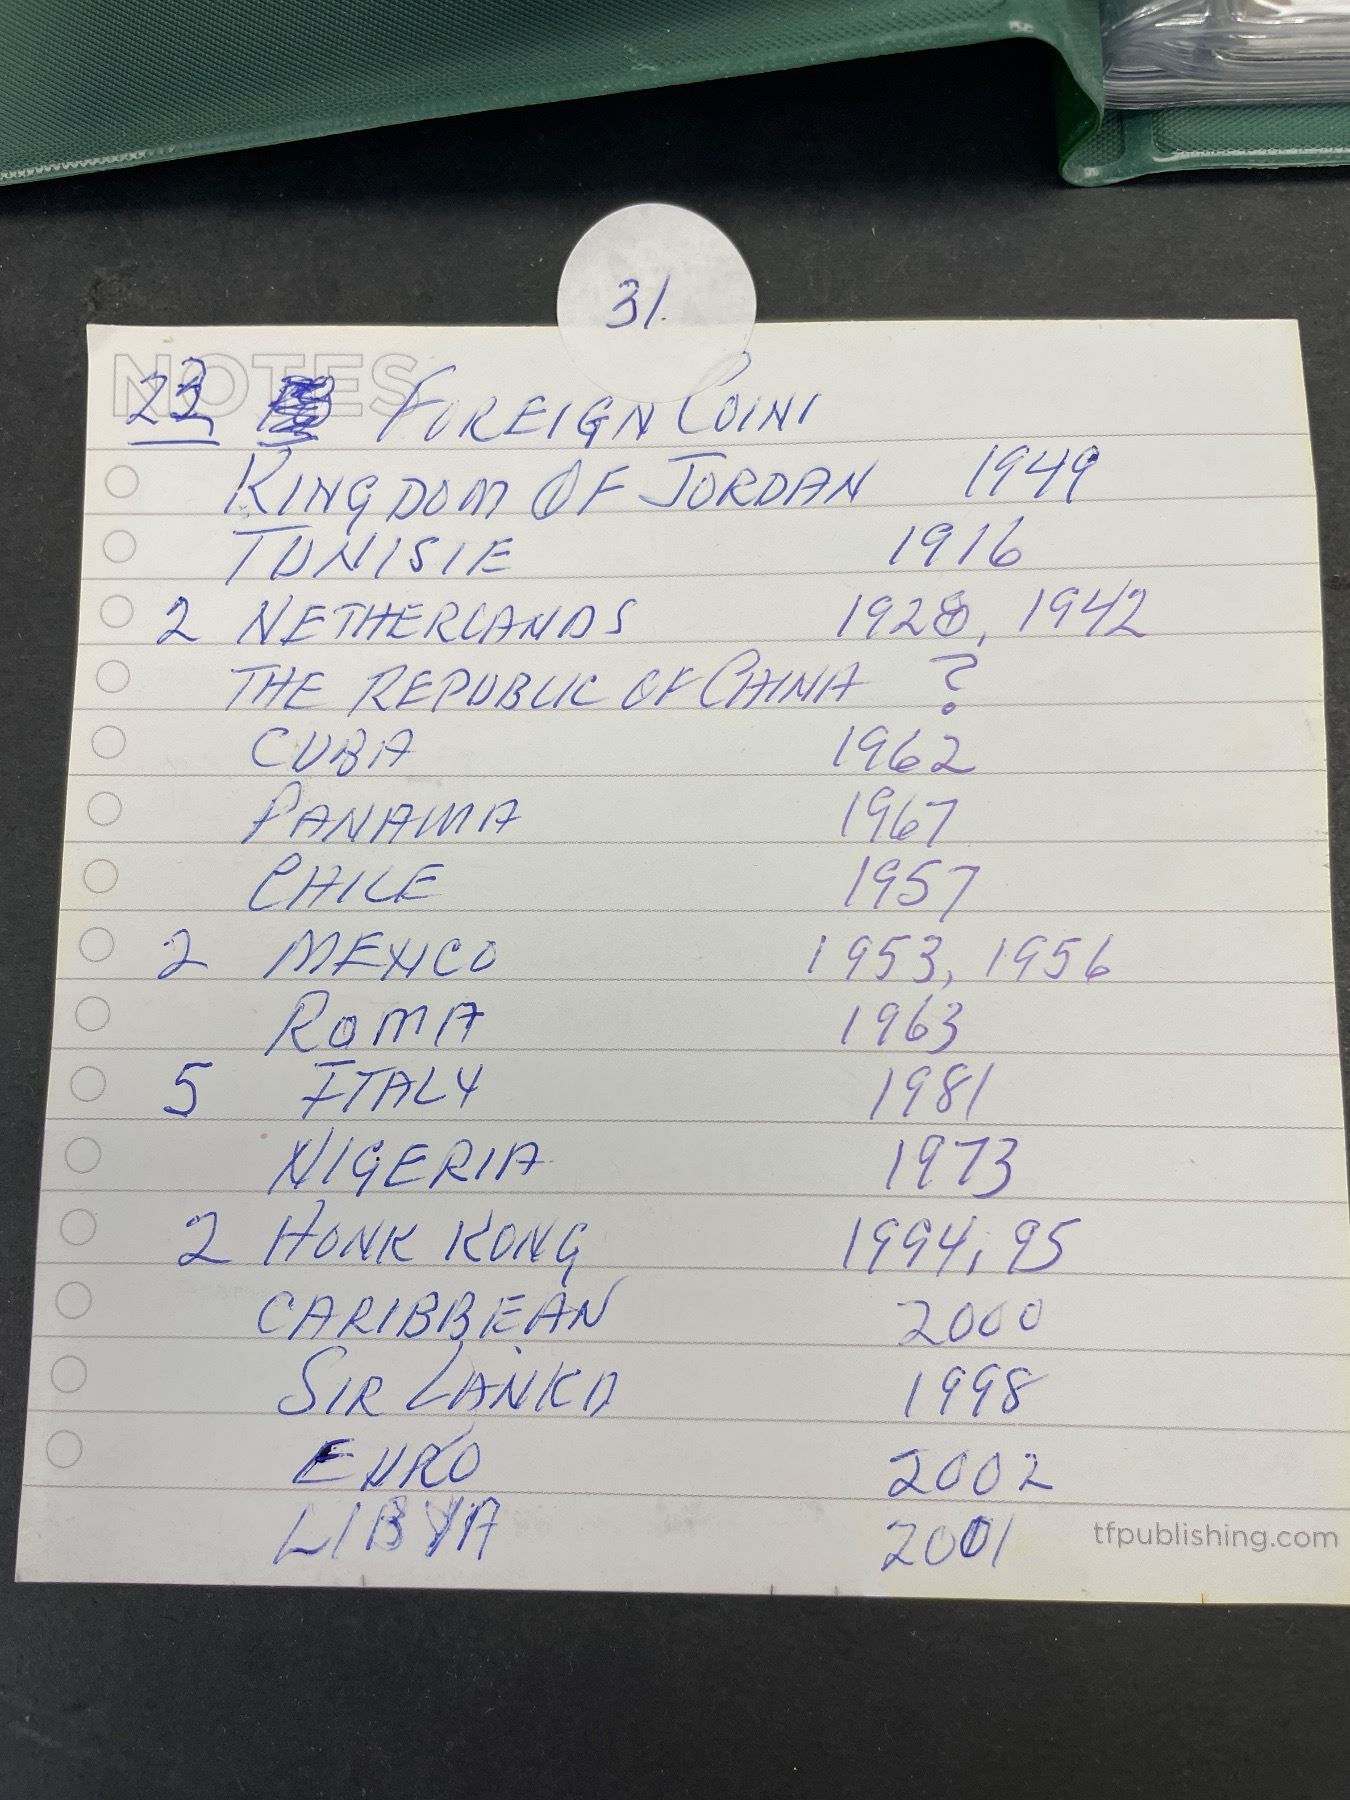 31.
NOTES
23 FOREIGN COINS
KINGDOM OF JORDAN 1949
TUNISIE 1916
2 NETHERLANDS 1928, 1942
THE REPUBLIC OF CHINA ?
CUBA 1962
PANAMA 1967
CHILE 1957
2 MEXICO 1953, 1956
ROMA 1963
5 ITALY 1981
NIGERIA 1973
2 HONK KONG 1994, 95
CARIBBEAN 2000
SIR LANKA 1998
EURO 2002
LIBYA 2001
tfpublishing.com